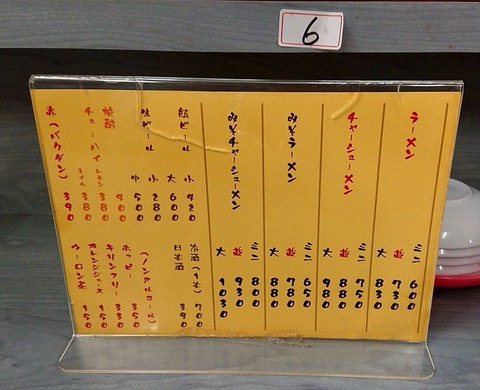 6
ラーメン
ミニ 600
並 730
大 830
チャーシューメン
ミニ 750
並 880
大 980
みそラーメン
ミニ 650
並 780
大 880
みそチャーシューメン
ミニ 800
並 930
大 1030
瓶ビール 小 420
大 600
生ビール 小 280
中 500
焼酎 400
チューハイ レモン 380
ライム 380
赤(バクダン) 390
冷酒(1本) 700
日本酒 390
(ノンアルコール)
ホッピー 350
キリンフリー 330
オレンジジュース 150
ウーロン茶 150